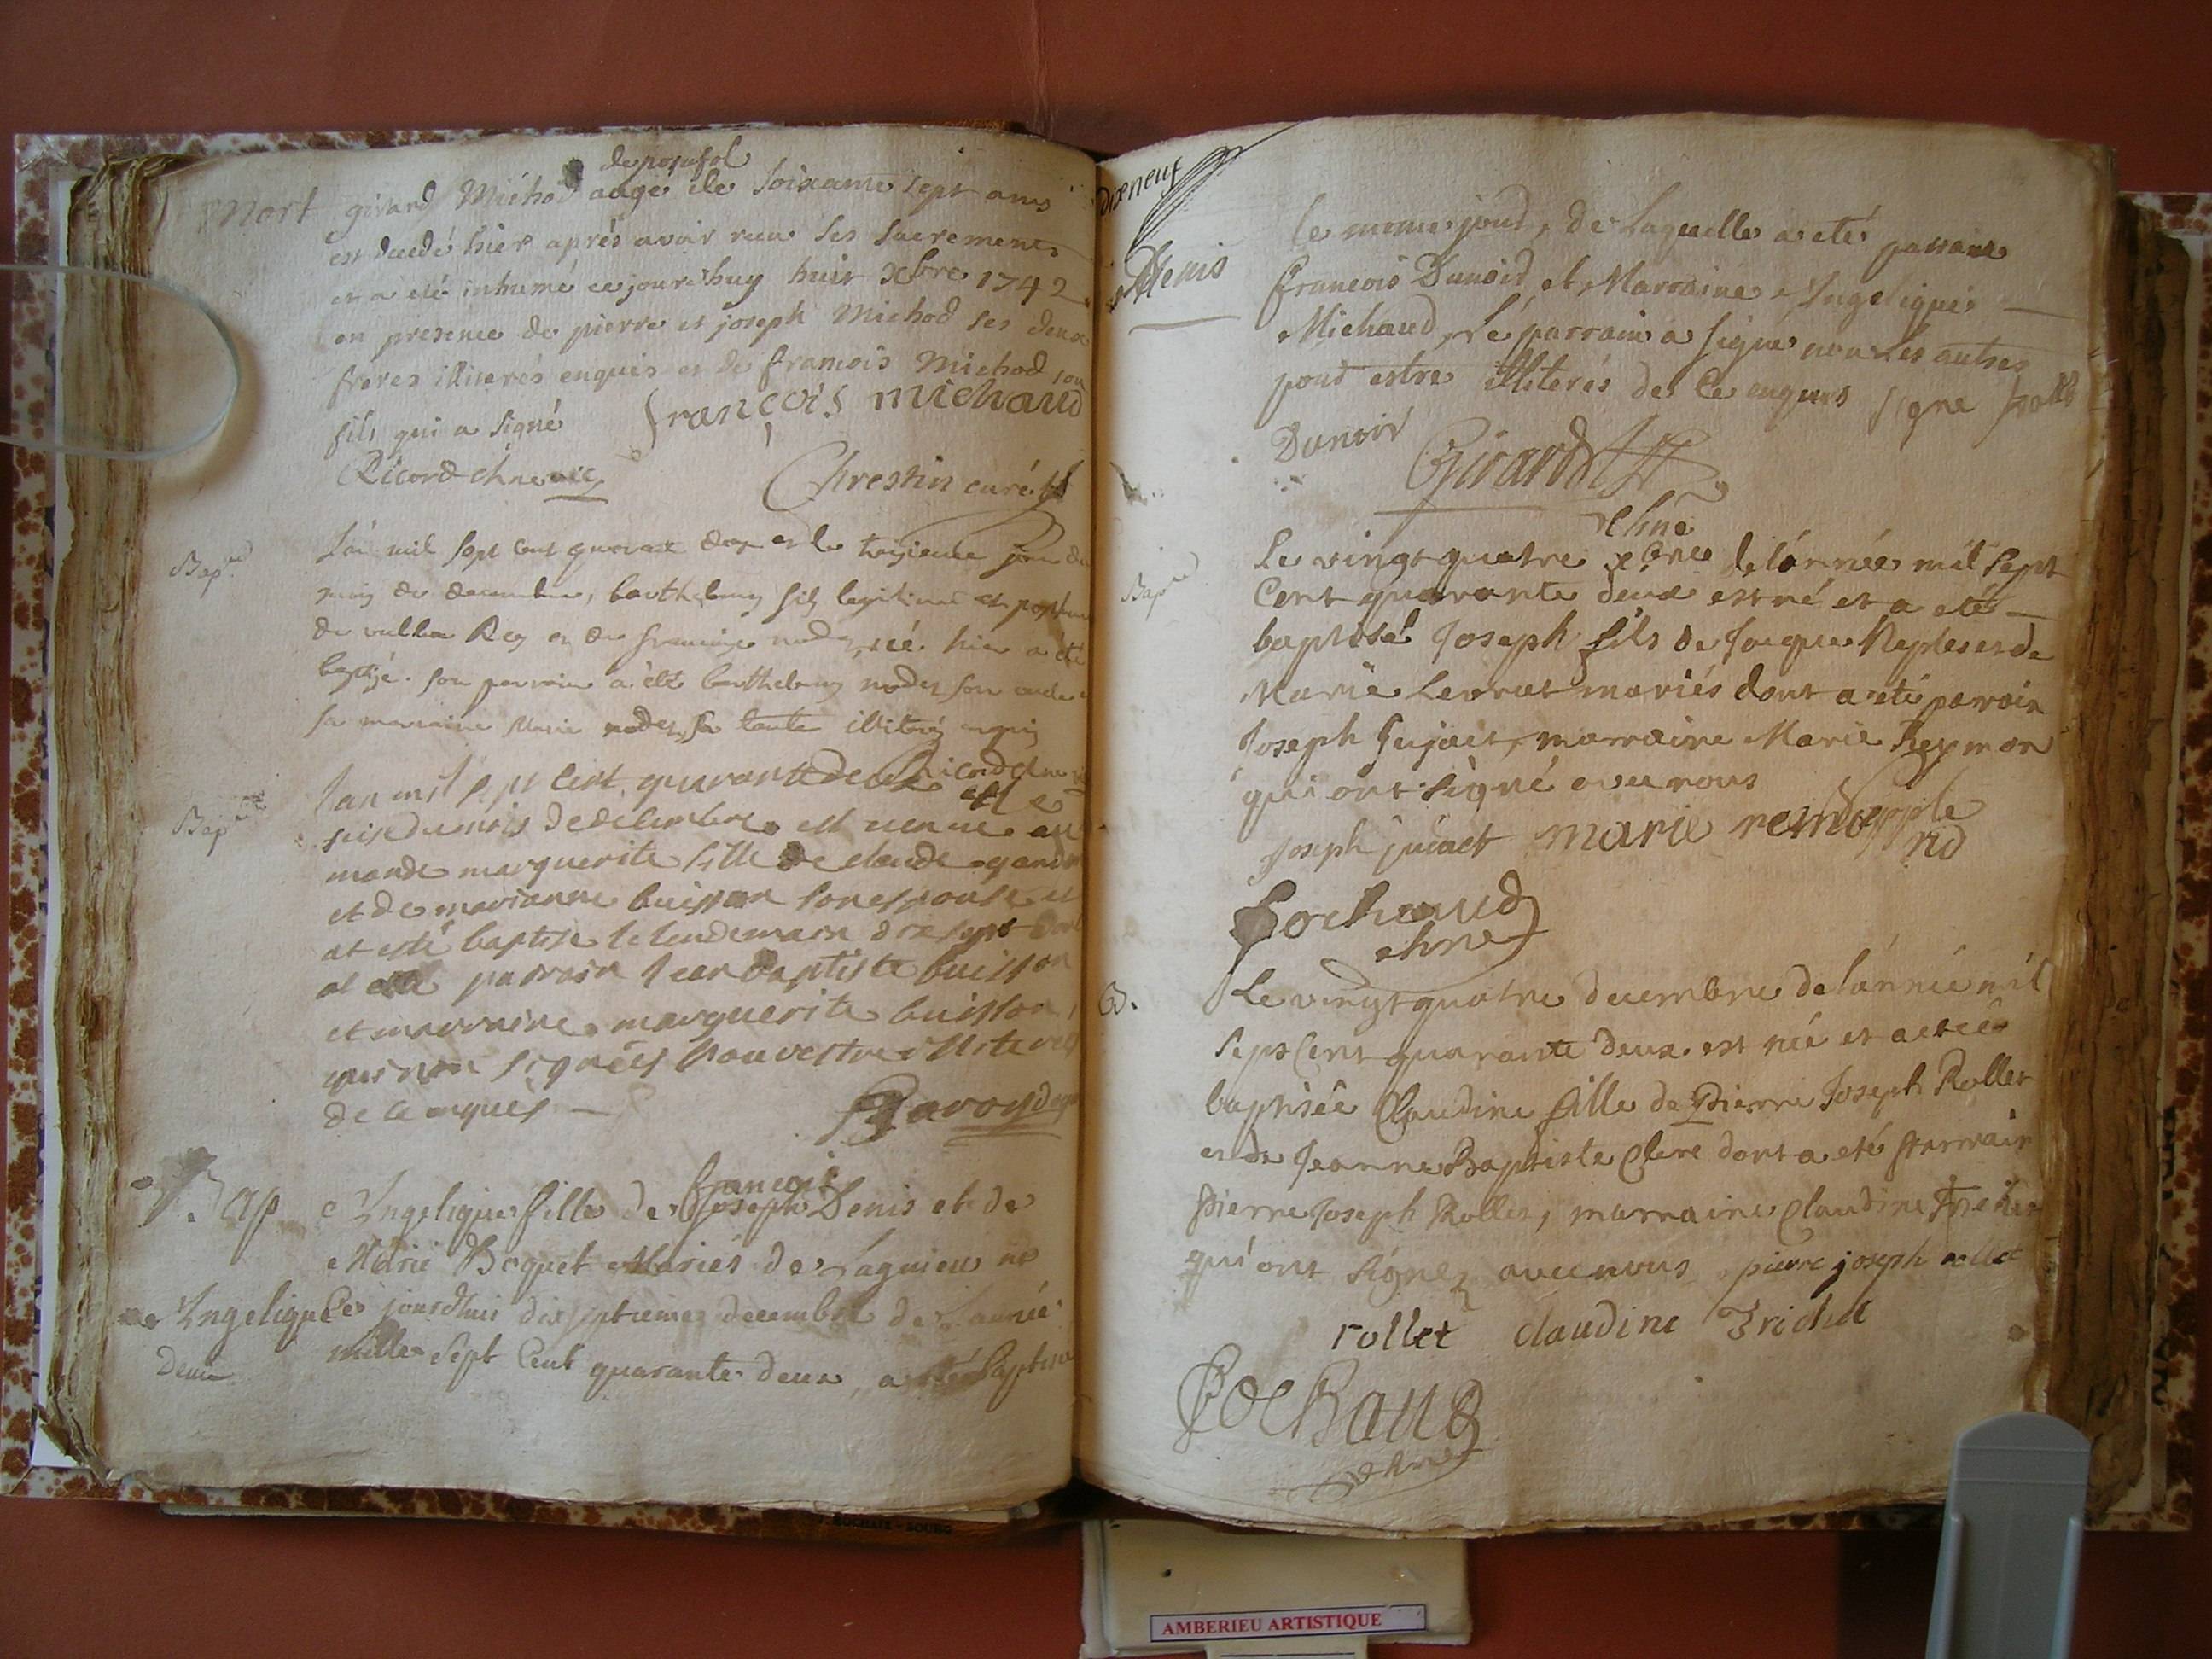 de posafol
Mort girard Michod aagé de soixante sept ans
est decedé hier aprés avoir receu ses sacrements
et a eté inhumé ce jourdhuy huit Xbre 1742
en presence de pierre et joseph Michod ses deux
freres illiterés enquis et de francois Michod son
fils qui a signé françois michaud
Ricord chne vic
Chrestin curé
Bap
L'an mil sept cent quarante deux et le treizieme jour du
mois de decembre, barthelemy fils legitime et posthume
de Rey et de françoise nodet, né hier a été
baptizé. son parrain a été barthelemy nodet son oncle
sa marraine Marie nodet sa tante illiterés enquis
Ricord chne
Bap
lan mil sept cent quarante deux et le
seise du mois de decembre est venue au
monde marguerite fille de claude
et de marianne buisson son espouse et
at esté baptise le lendemain dix sept dont
at esté parrain Jean baptiste buisson
et marraine marguerite buisson
qui non signées pour estre illiterés
de ce enquis
Bap Angelique fille de francois Joseph Denis et de
Marie Boquet Mariés de Lagnieu né
Angelique Ce jourdhui dixseptieme decembre de L'année
Denis mille Sept Cent quarante deux a été Baptisé
dixneuf
Denis
le meme jour, de Laquelle a eté parrain
francois Dunoid, et Marraine Angelique
Michaud, Le parrain a signé non les autres
pour estre illiterés de Ce enquis signe
Dunoid Girard
chne
Bap
Le vingt quatre xbre de l'année mil sept
Cent quarante deux est né et a eté
baptisé Joseph fils de Jacque Neples et de
Marie Levrat mariés dont a eté parrain
Joseph Jujat, marraine Marie Reymon
qui ont signé avec nous
Joseph marie remond
Cochaud
chne
B.
Le vingt quatre decembre de l'année mil
Sept Cent quarante deux est né et a eté
baptisée Claudine fille de Pierre Joseph Rollet
et de Jeanne Baptiste Clerc dont a eté parrain
Pierre Joseph Rollet, marraine Claudine
qui ont signez avec nous pierre joseph rollet
rollet claudine Trichet
Cochaud
chne
AMBERIEU ARTISTIQUE